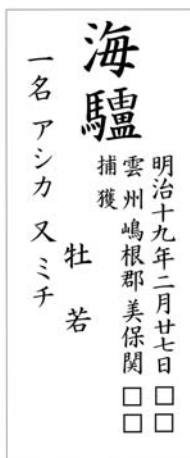 海驢
明治十九年二月廿七日□□
雲州嶋根郡美保関□□
捕獲
牡若
一名アシカ又ミチ